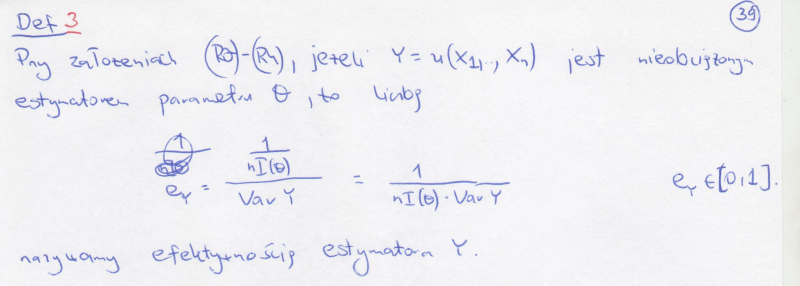 Def 3
39
Przy założeniach (R0)-(R4), jeżeli Y = u(X1,..., Xn) jest nieobciążonym
estymatorem parametru θ, to liczbę
e_Y = (1/(nI(θ)))/(Var Y) = 1/(nI(θ)·Var Y) e_Y ∈ [0,1].
nazywamy efektywnością estymatora Y.